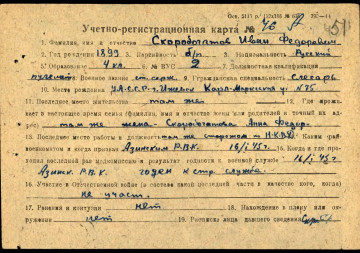 Учетно-регистрационная карта № 76
1. Фамилия, имя и отчество Скоробогатов Иван Федорович
2. Год рождения 1899 3. Партийность б/п 4. Национальность Русский
5. Образование 4 кл. 6. № ВУС 2 7. Должностная квалификация
8. Военное звание 9. Гражданская специальность Слесарь
10. Место рождения У.А.С.С.Р. г. Ижевск Карл-Маркса ул. №75
11. Последнее место жительства там же 12. Где проживает
в настоящее время семья (фамилия, имя и отчество жены или родителей и точный их адрес)
там же жена - Скоробогатова Анна Федор.
13. Последнее место работы и должность Н.К.В.Д. Каким
военкоматом и когда призван Азинским Р.В.К. 16/I 45 г.
последний раз медкомиссию и результат годности к военной службе 16/I 45 г
Азинск. Р.В.К. годен к стр. службе.
16. Участие в Отечественной войне (в составе какой последней части и качестве кого, когда)
не участ.
17. Ранения и контузии нет 18. Нахождение в плену или окружении
нет 19. Расписка лица давшего сведения